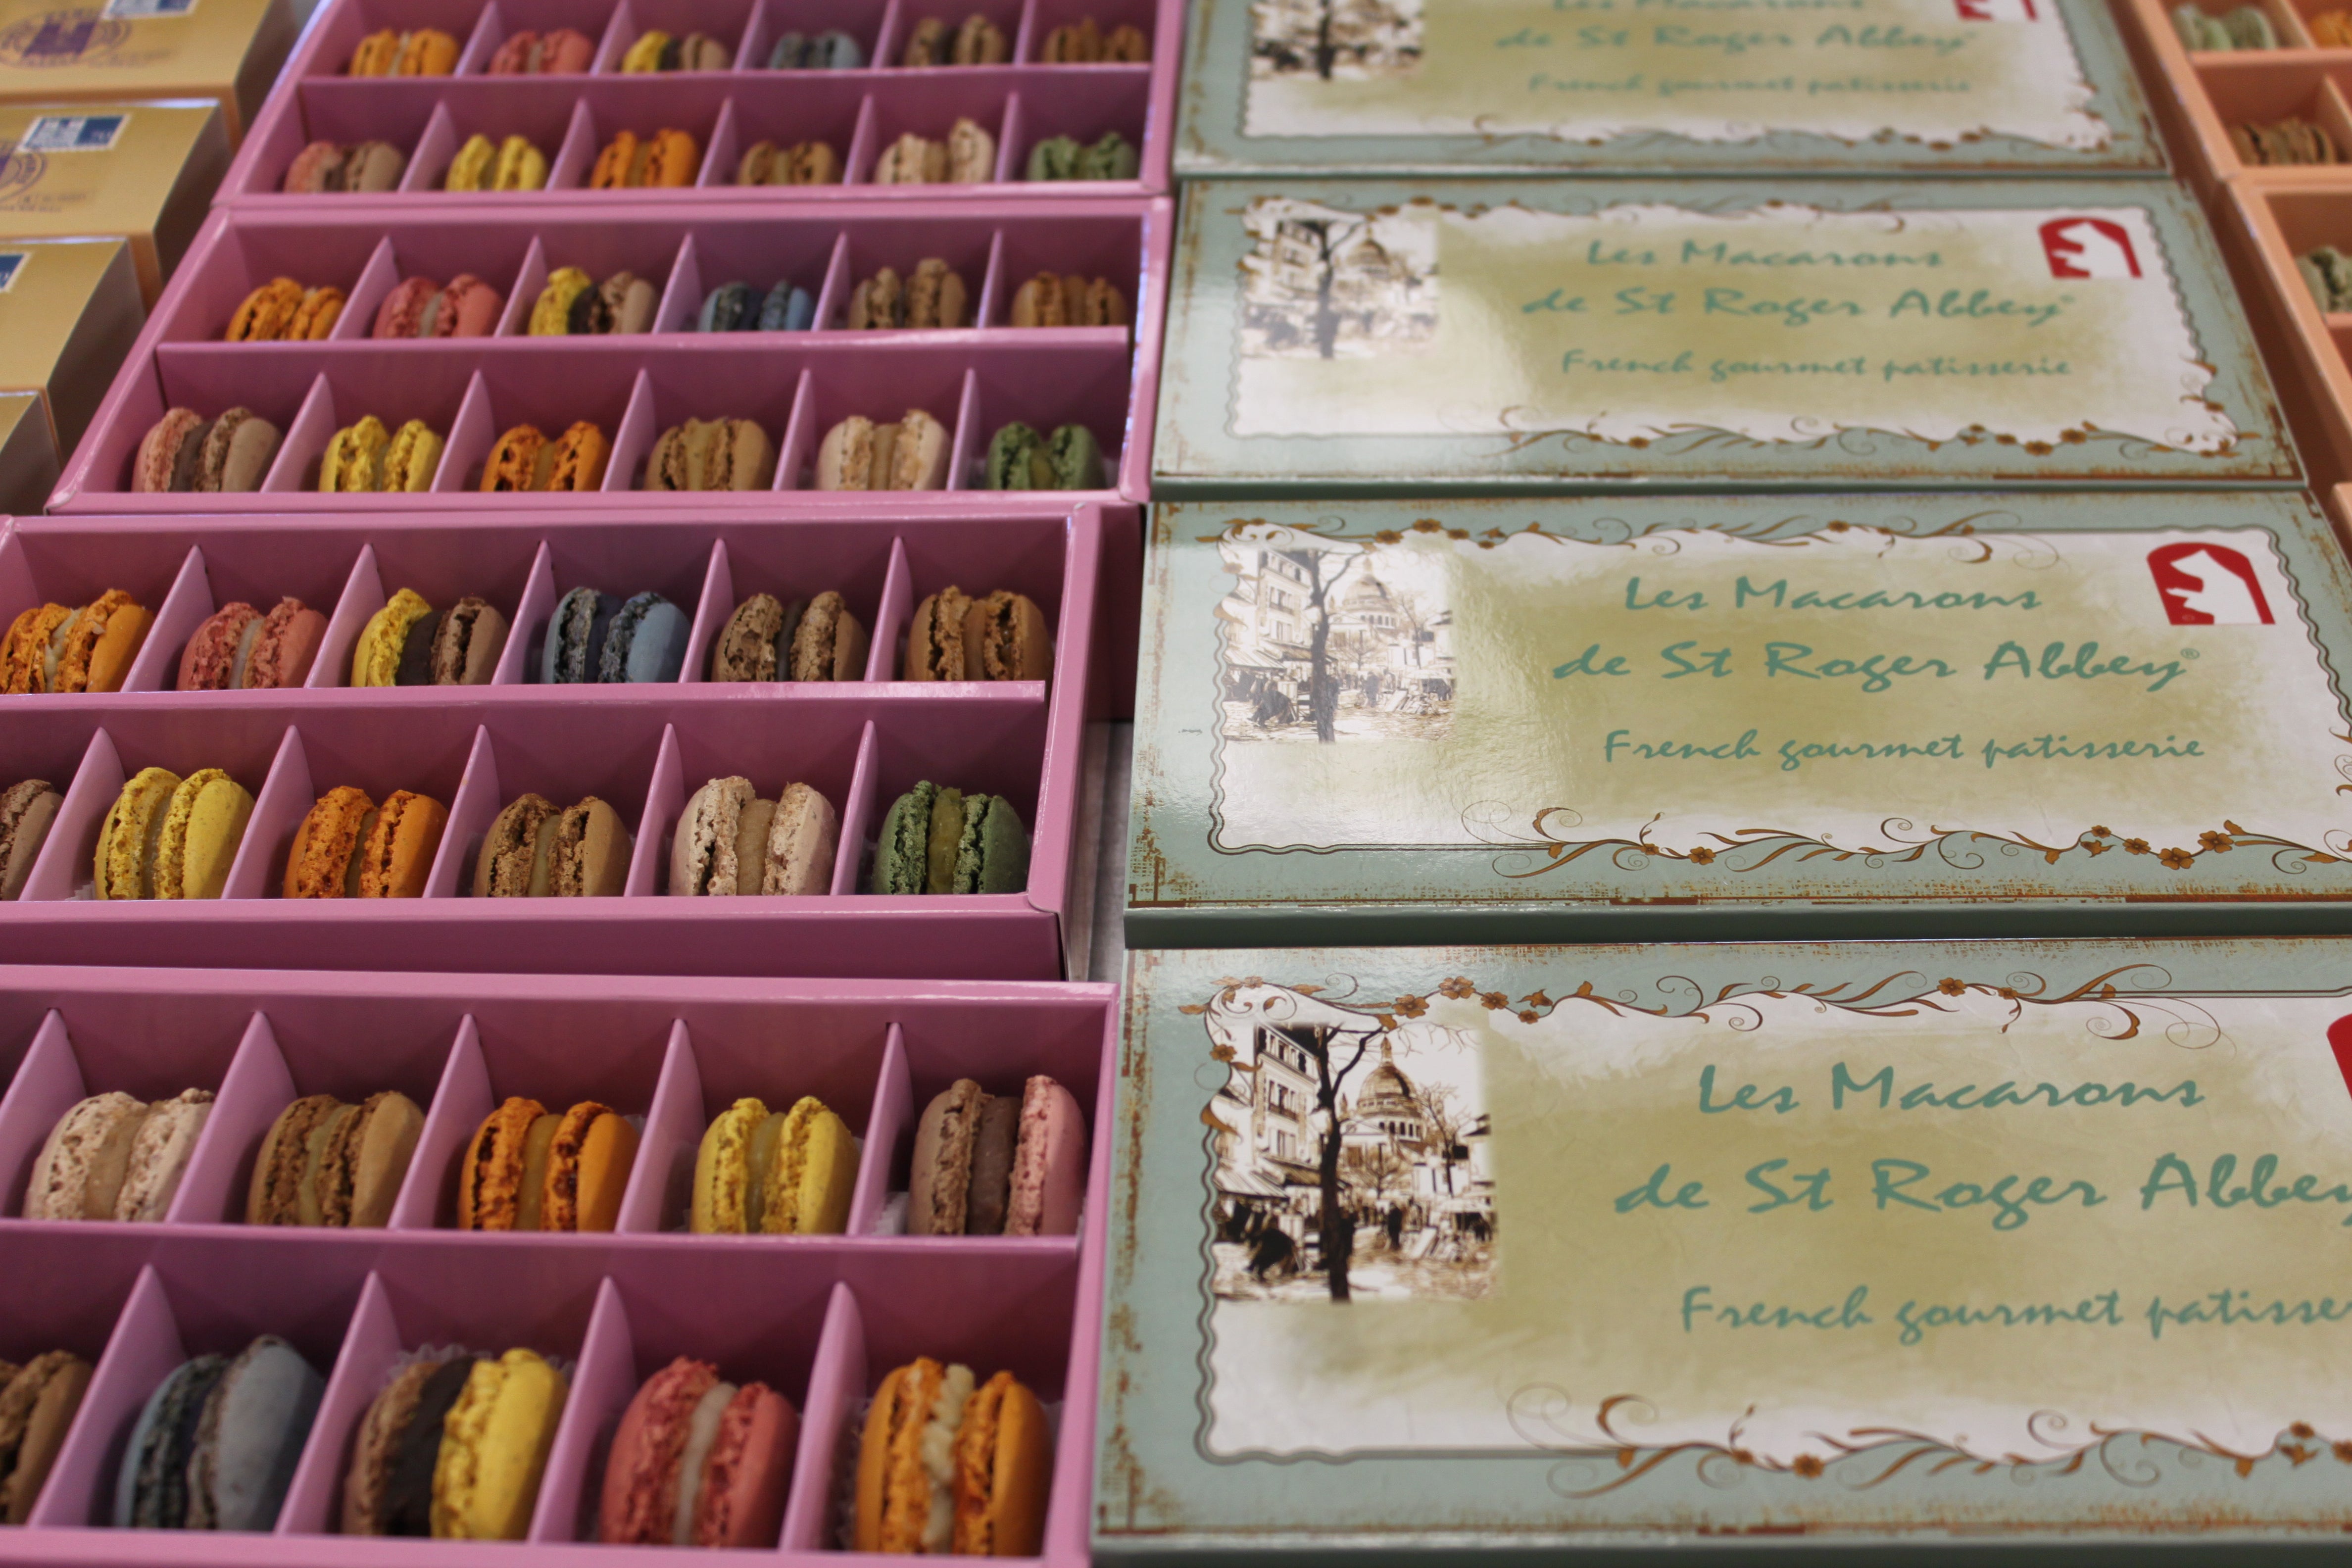 Les Macarons
de St Roger Abbey
French gourmet patisserie
Les Macarons
de St Roger Abbey®
French gourmet patisserie
Les Macarons
de St Roger Abbey®
French gourmet patisserie
Les Macarons
de St Roger Abbey
French gourmet